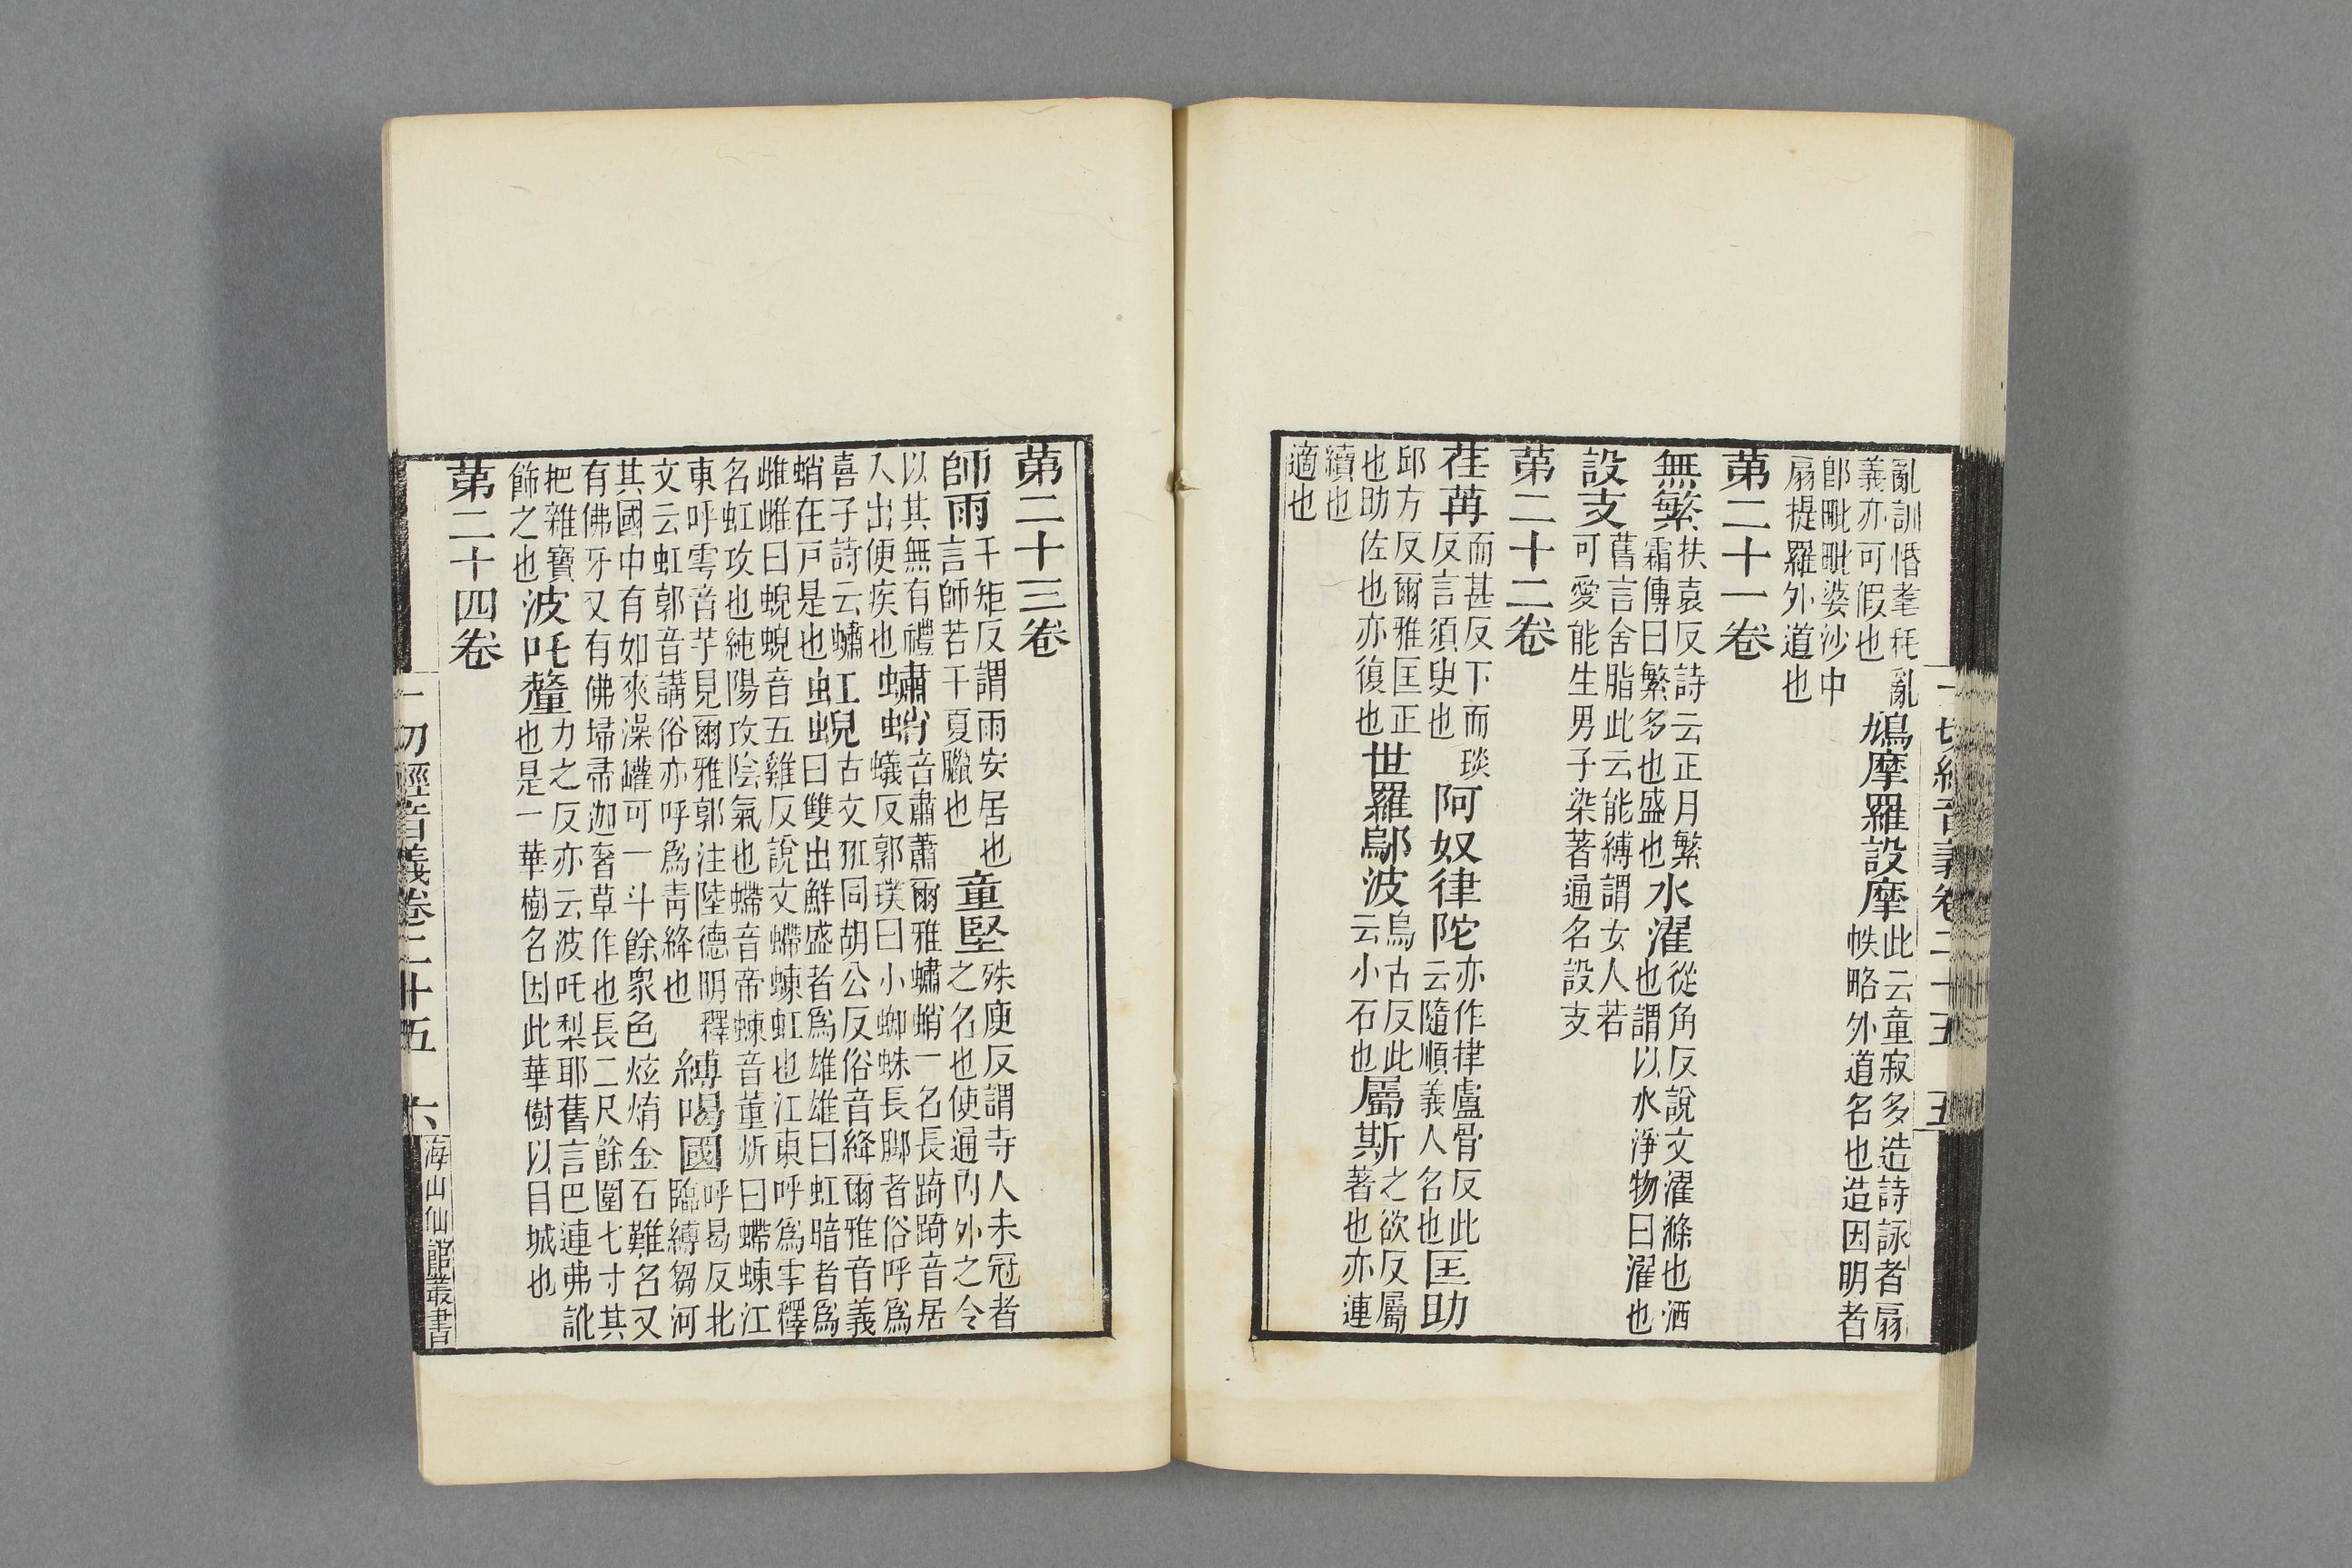 亂訓惛耄秏亂
義亦可假也
鳩摩羅設摩
此云童寂多造詩詠者扇
帙略外道名也造因明者
卽毗毗婆沙中
扇提羅外道也
第二十一卷
無繁
扶袁反詩云正月繁
霜傳曰繁多也盛也
水濯
從角反說文濯滌也洒
也謂以水淨物曰濯也
設支
舊言舍脂此云能縛謂女人若
可愛能生男子染著通名設支
第二十二卷
荏苒
而甚反下而琰
反言須臾也
阿奴律陀
亦作盧骨反此
云隨順義人名也
匡助
邱方反爾雅匡正
也助佐也亦復也
世羅鄔波
烏古反此
云小石也
屬斯
之欲反屬
著也亦連
續也
適也
一切經音義卷二十五 五
第二十三卷
師雨
千矩反謂雨安居也
言師若干夏臘也
童竪
殊庾反謂寺人未冠者
之名也使通內外之令
以其無有禮
人出便疾也
蠨蛸
音肅蕭爾雅蠨蛸一名長踦踦音居
蟻反郭璞曰小蜘蛛長腳者俗呼爲
喜子詩云蠨
蛸在戸是也
虹蜺
古文同胡公反俗音絳爾雅音義
曰雙出鮮盛者爲雄雄曰虹暗者爲
雌雌曰蜺蜺音五雞反說文螮蝀虹也江東呼爲雩釋
名虹攻也純陽攻陰氣也螮音帝蝀音董炘曰螮蝀江
東呼雩音芋見爾雅郭注陸德明釋
文云虹郭音講俗亦呼爲靑絳也
縛喝國
呼曷反北
臨縛芻河
其國中有如來澡罐可一斗餘衆色炫焴金石難名又
有佛牙又有佛埽帚迦奢草作也長二尺餘圍七寸其
把雜寶
飾之也
波吒釐
力之反亦云波吒梨耶舊言巴連弗訛
也是一華樹名因此華樹以目城也
第二十四卷
一切經音義卷二十五 六 海山仙館叢書